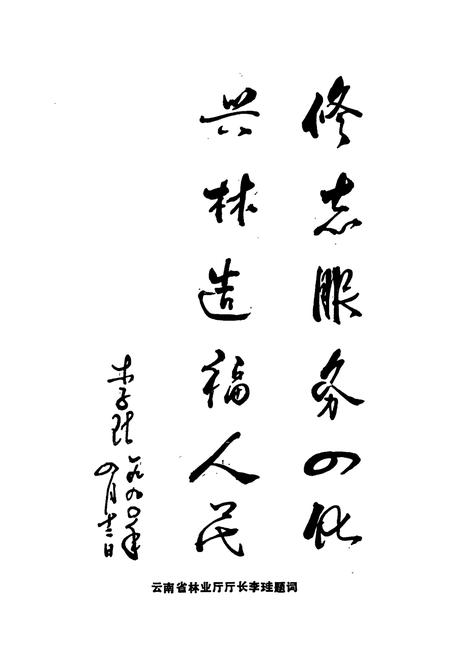 修志服务四化
兴林造福人民
李珪 一九九〇年
四月十三日
云南省林业厅厅长李珪题词